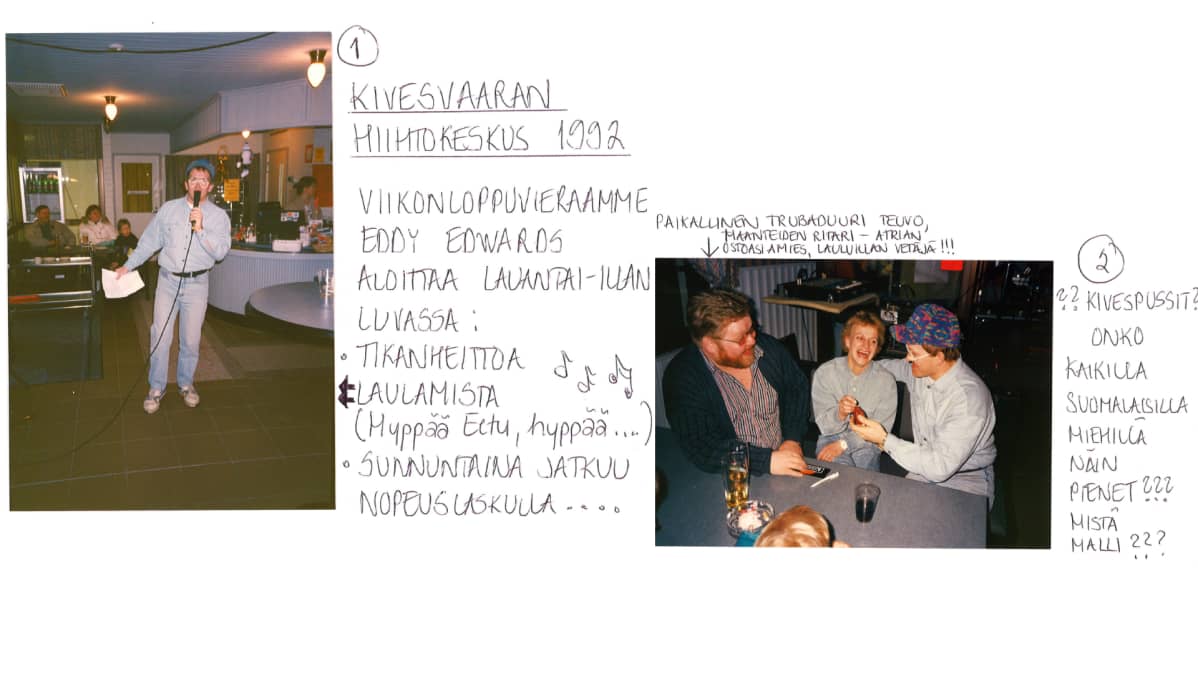 1
KIVESVAARAN
HIIHTOKESKUS 1992
VIIKONLOPPUVIERAAMME
EDDY EDWARDS
ALOITTAA LAUANTAI-ILLAN
LUVASSA :
• TIKANHEITTOA
LAULAMISTA
(Hyppää Eetu, hyppää....)
• SUNNUNTAINA JATKUU
NOPEUSLASKULLA.....
PAIKALLINEN TRUBADUURI TEUVO,
MAANTEIDEN RITARI – ATRIAN
OSTOASIAMIES, LAULUILLAN VETÄJÄ !!!
2
?? KIVESPUSSIT?
ONKO
KAIKILLA
SUOMALAISILLA
MIEHILLÄ
NÄIN
PIENET ???
MISTÄ
MALLI ???